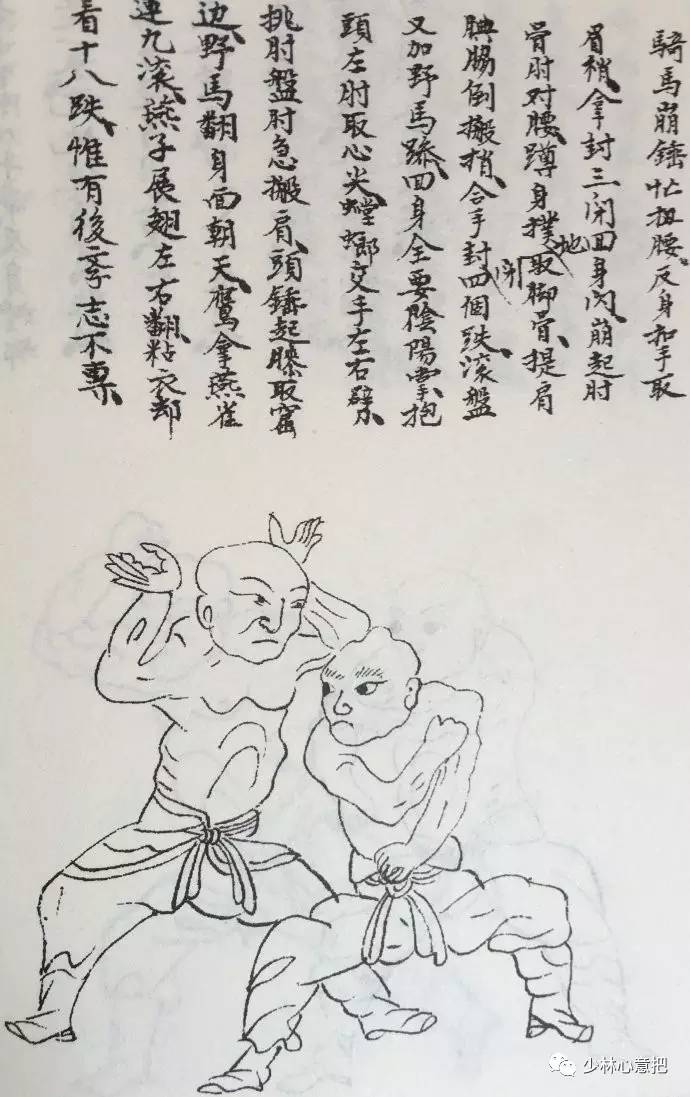 騎馬崩錘忙扭腰、反身扣手取
眉稍、拿封三闭回身闪、崩起肘
骨肘对腰、蹲身撲地取脚骨、提肩
腆腸倒搬捎、合手封闭四個跌、滚盤
又加野馬跡、回身全要陰陽掌、抱
頭左肘取心尖、螳螂交手左右劈、
挑肘盤肘急搬肩、頭錘起膝取窩
边、野馬翻身面朝天、鹰拿燕雀
連九滚、燕子展翅左右翻、粘衣却
看十八跌、惟有後季志不專、
少林心意把